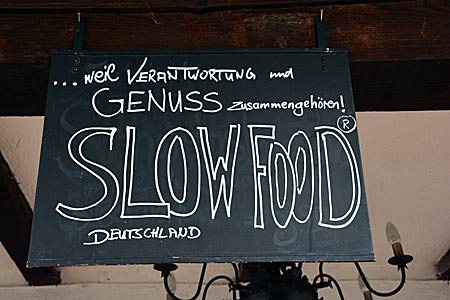 ...weil VERANTWORTUNG und
GENUSS zusammengehören!
SLOW FOOD®
DEUTSCHLAND